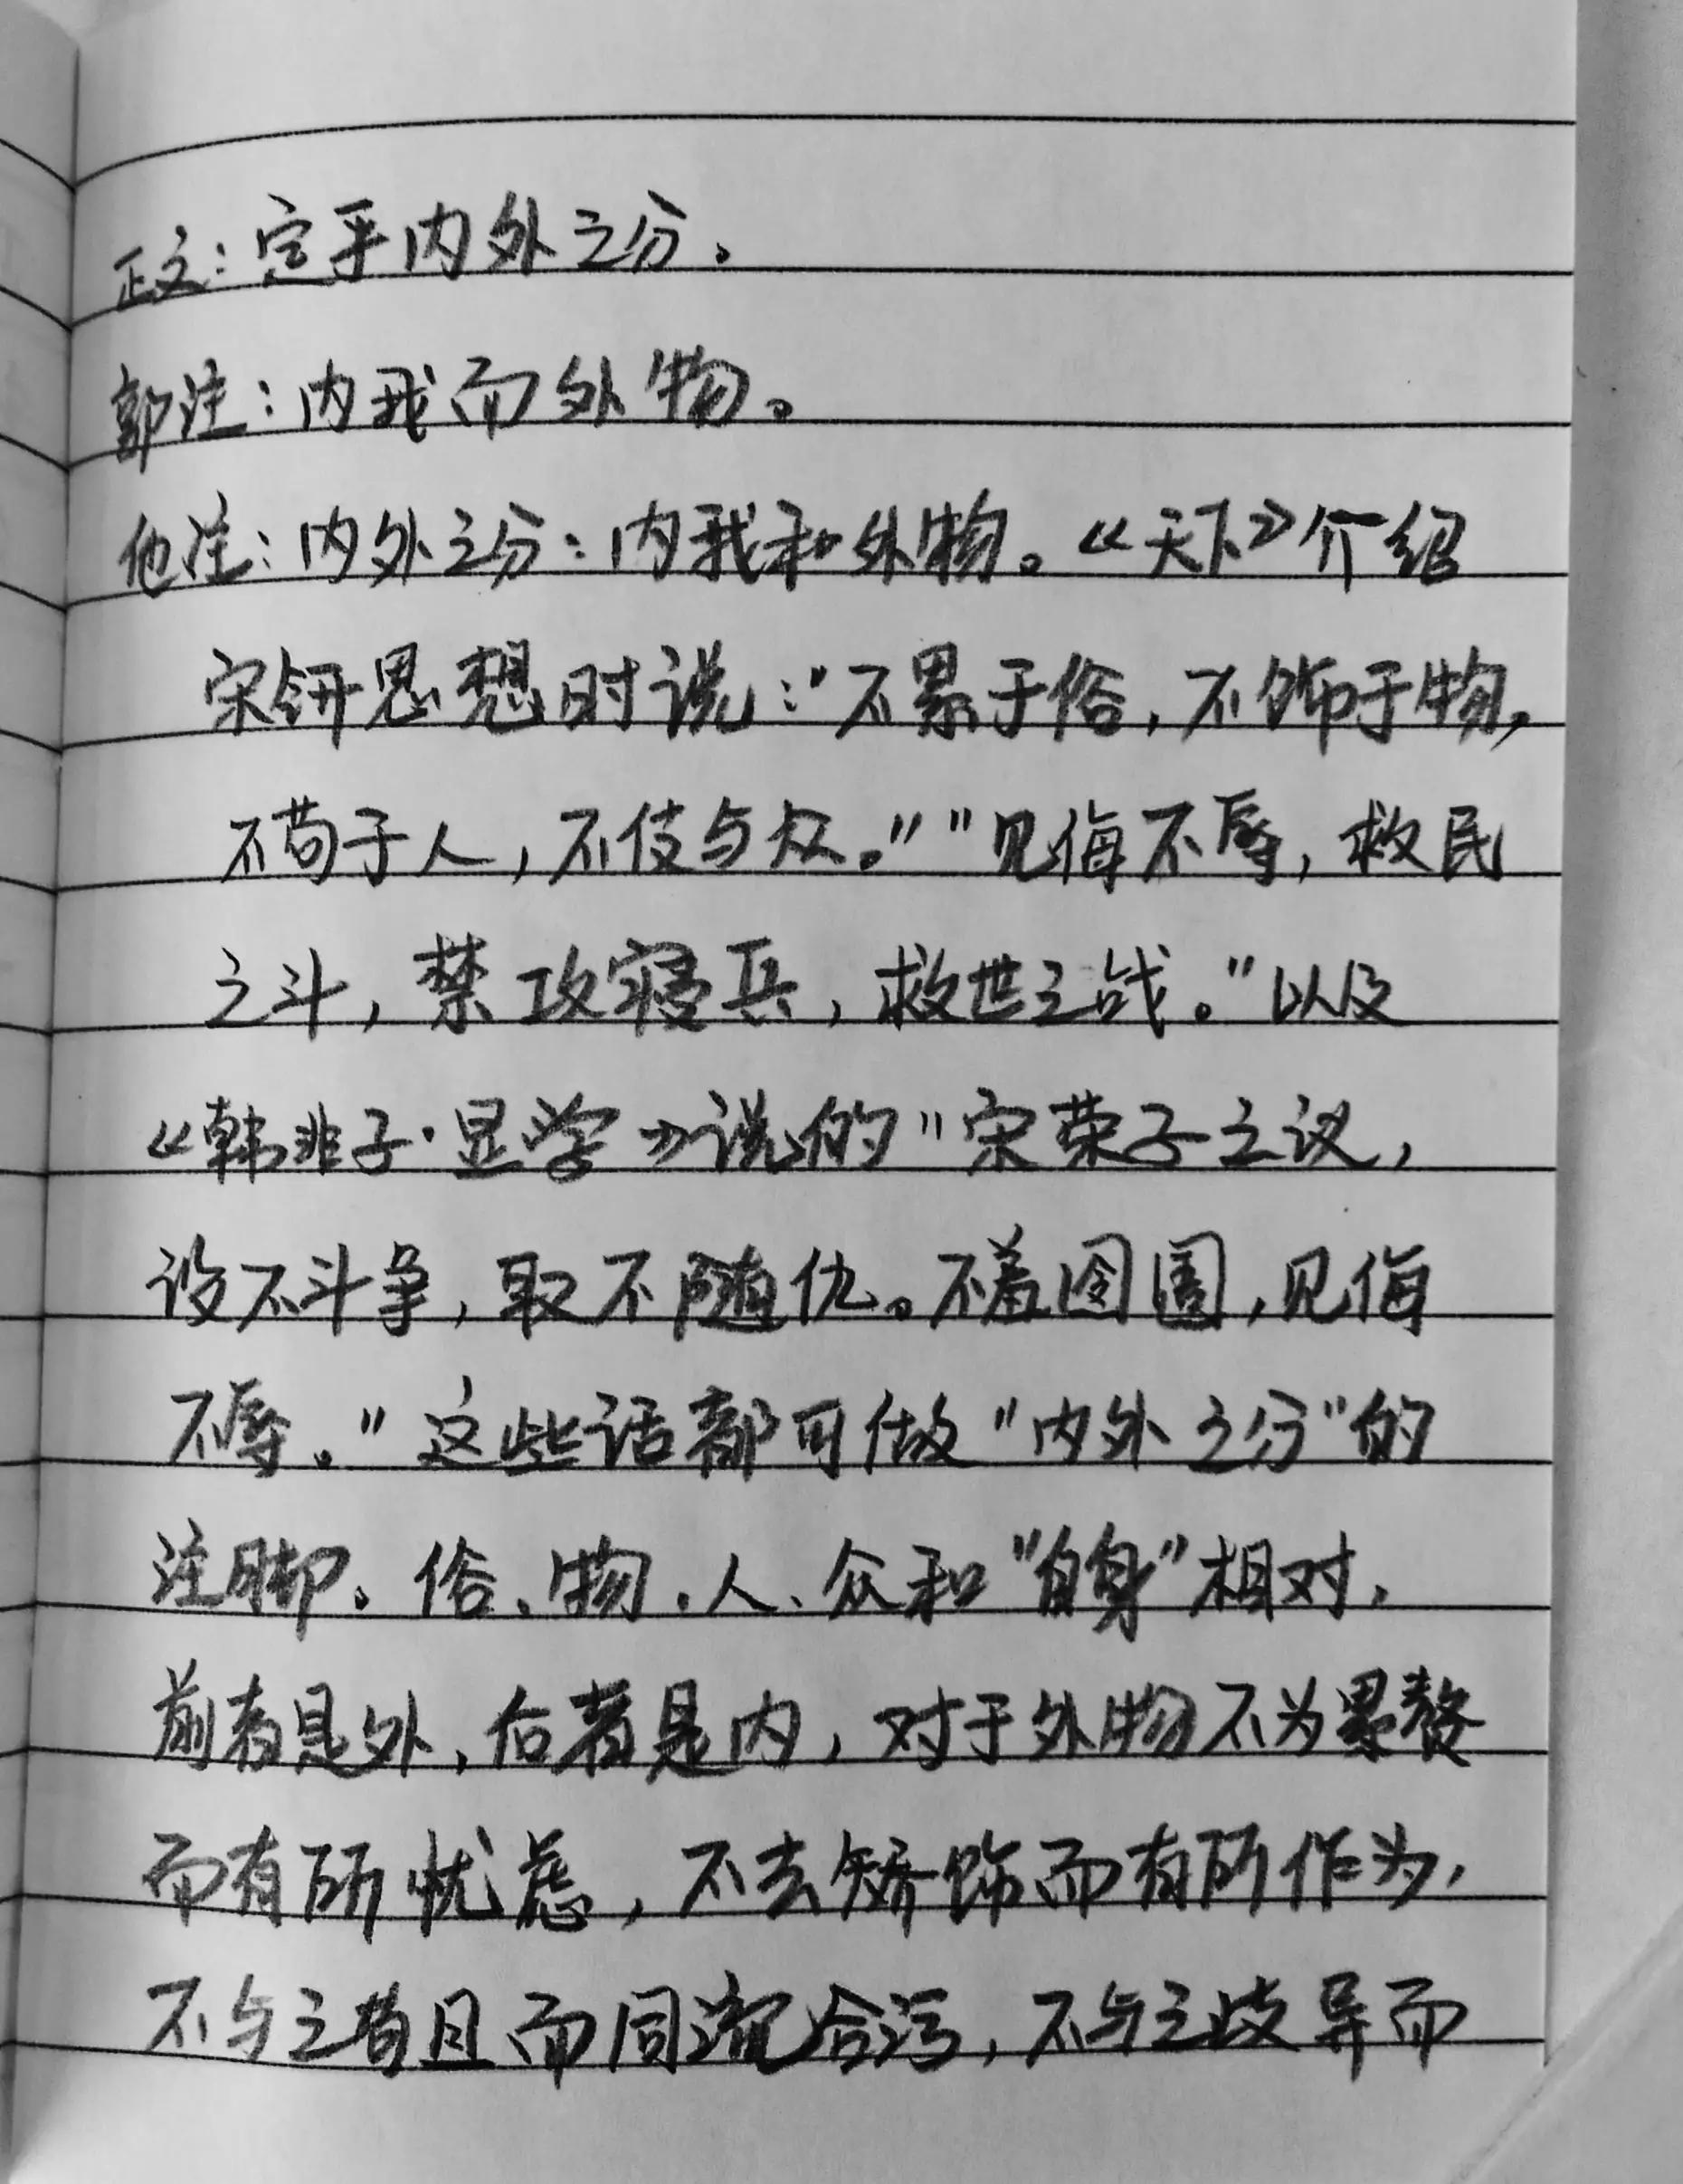 正文：定乎内外之分。
郭注：内我而外物。
他注：内外之分：内我和外物。《天下》介绍
宋钘思想时说：“不累于俗，不饰于物，
不苟于人，不伎与众。”“见侮不辱，救民
之斗，禁攻寝兵，救世之战。”以及
《韩非子·显学》说的“宋荣子之议，
设不斗争，取不随仇。不羞囹圄，见侮
不辱。”这些话都可做“内外之分”的
注脚。俗、物、人、众和“自身”相对，
前者是外，后者是内，对于外物不为累赘
而有所忧虑，不去矫饰而有所作为，
不与之苟且而同流合污，不与之歧异而